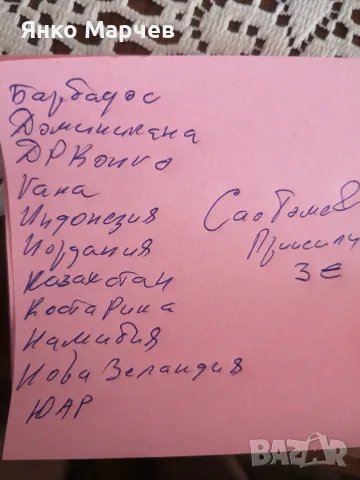 Янко Марчев
Барбадос
Доминикана
ДРКонго
Гана
Индонезия
Йордания
Казахстан
Коста Рика
Намибия
Нова Зеландия
ЮАР
Сао Томе
3 €
BAZAR